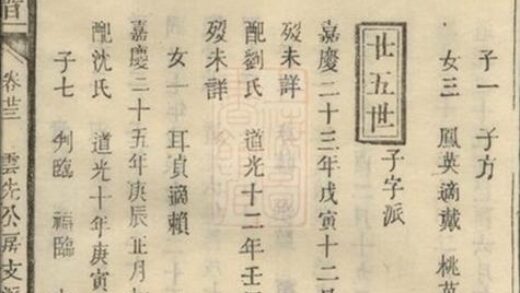 子一 子方
女三 鳳英適戴 桃
廿五世 子字派
嘉慶二十三年戊寅十二
歿未詳
配劉氏 道光十二年壬
歿未詳
女一 耳貞適賴
嘉慶二十五年庚辰正月
配沈氏 道光十年庚寅
子七 臨 福臨
卷廿三 雲先公居支